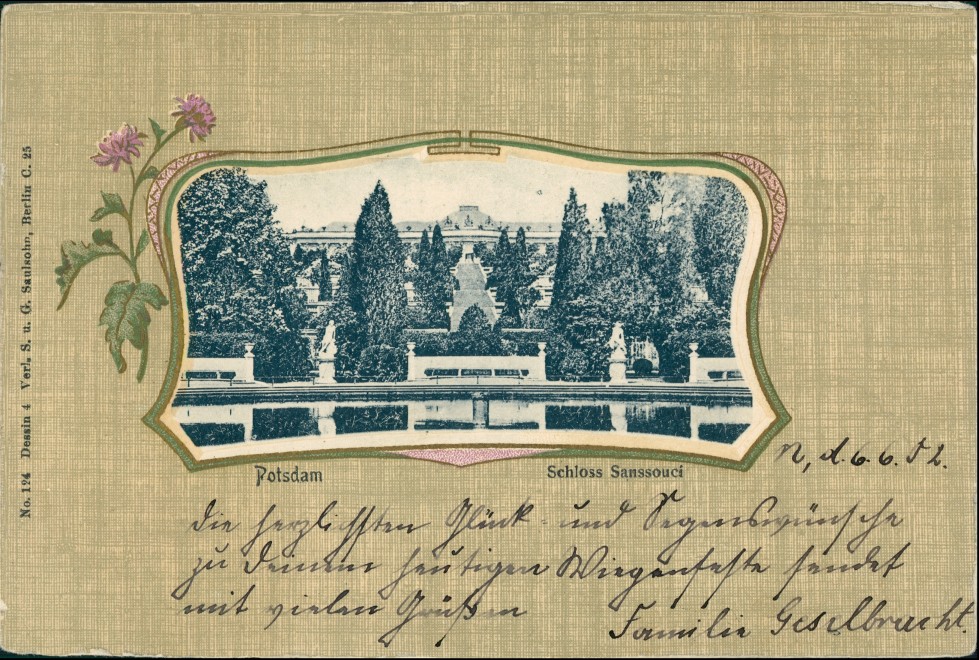 No. 124 Dessin 4 Verl. S. u. G. Saulsohn, Berlin C. 25
Potsdam
Schloss Sanssouci
N, d. 6. 6. 52.
die herzlichsten Glück- und Segenswünsche
zu Deinem heutigen Wiegenfeste sendet
mit vielen Grüßen
Familie Geselbracht.